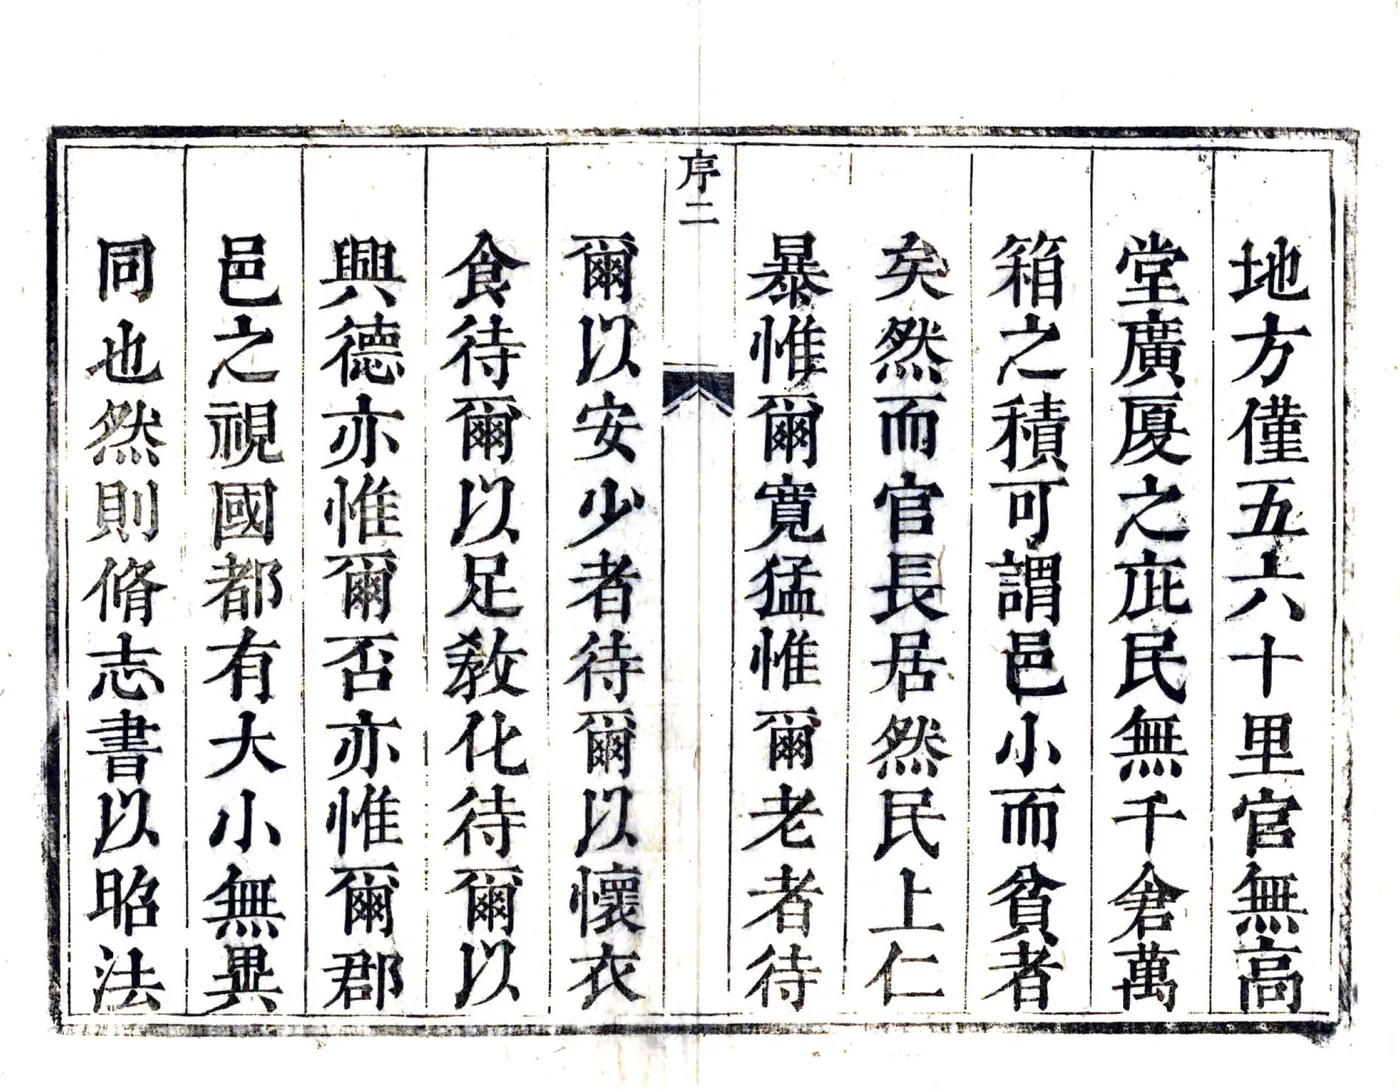 地方僅五六十里官無高
堂廣厦之庇民無千倉萬
箱之積可謂邑小而貧者
矣然而官長居然民上仁
暴惟爾寬猛惟爾老者待
序二
爾以安少者待爾以懷衣
食待爾以足敎化待爾以
興德亦惟爾否亦惟爾郡
邑之視國都有大小無異
同也然則脩志書以昭法